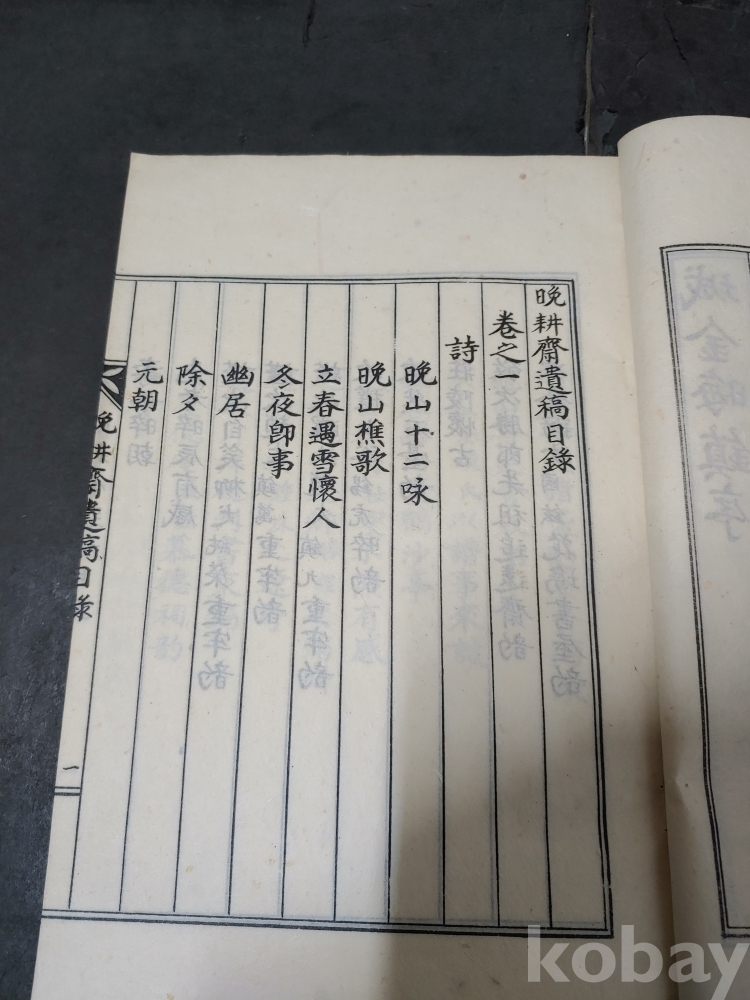 晩耕齋遺稿目錄
卷之一
詩
晩山十二咏
晩山樵歌
立春遇雪懷人
冬夜卽事
幽居
除夕
元朝
晩耕齋遺稿目錄
一
kobay